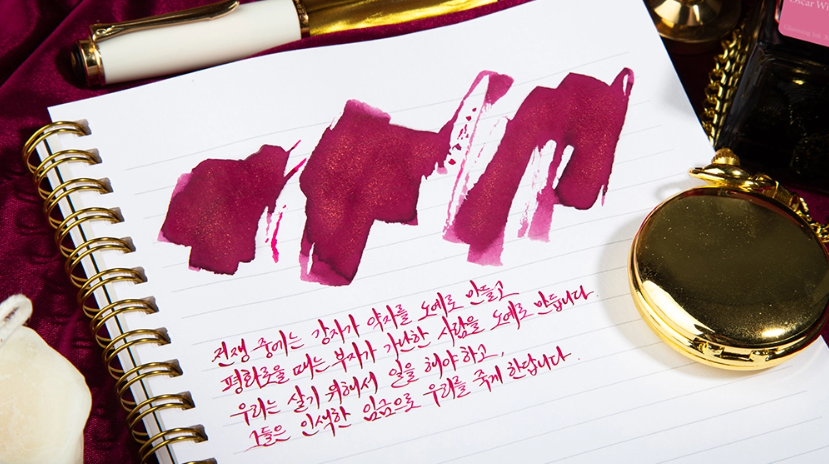 Oscar Wi
전쟁 중에는 강자가 약자를 노예로 만들고
평화로울 때는 부자가 가난한 사람을 노예로 만듭니다.
우리는 살기 위해서 일을 해야 하고,
그들은 인색한 임금으로 우리를 죽게 한답니다.